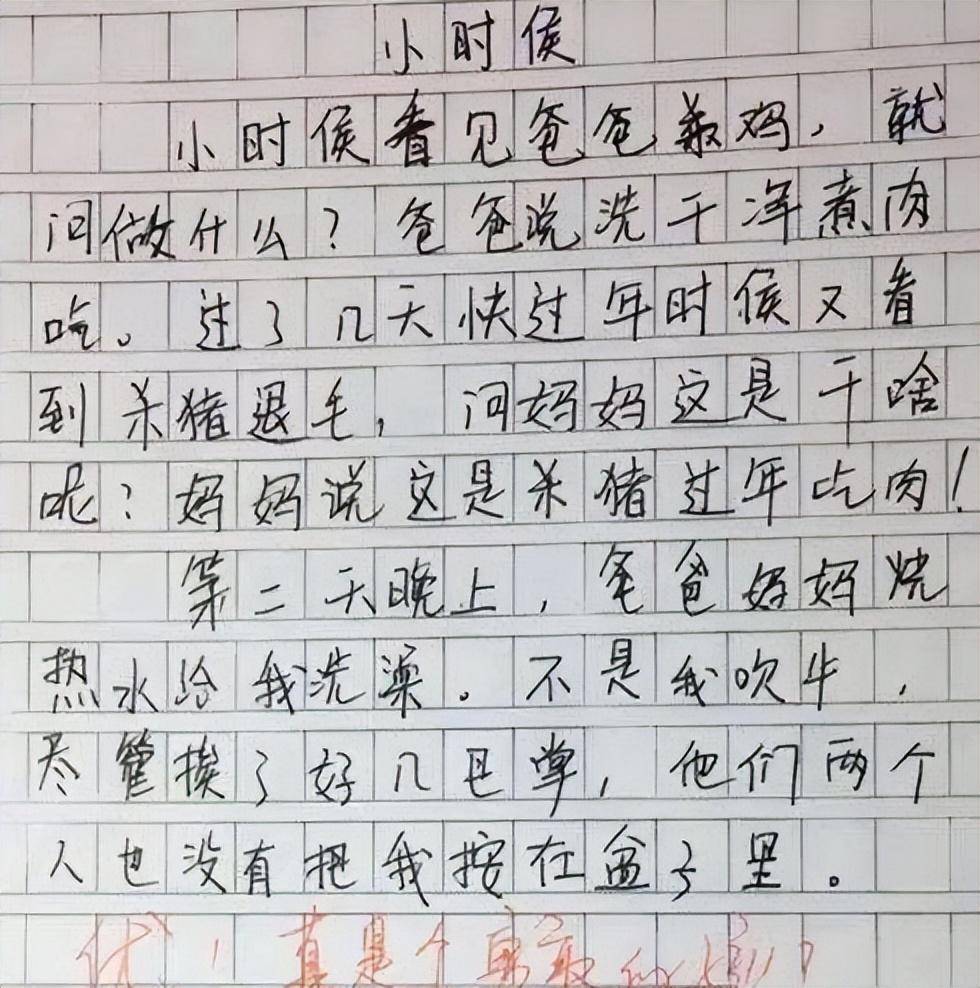 小时侯
小时侯看见爸爸鸡，就
问做什么？爸爸说洗干净煮肉
吃。过了几天快过年时侯又看
到杀猪退毛，问妈妈这是干啥
呢？妈妈说这是杀猪过年吃肉！
第二天晚上，爸爸妈妈烧
热水给我洗澡。不是我吹牛，
尽管挨了好几巴掌，他们两个
人也没有把我按在盆子里。
优！真是个勇敢的